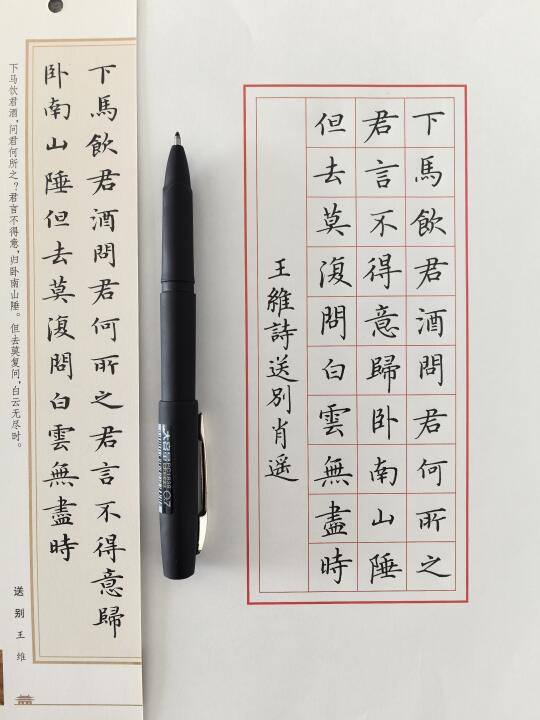 下馬飲君酒問君何所之君言不得意歸
卧南山陲但去莫復問白雲無盡時
下马饮君酒,问君何所之?君言不得意,归卧南山陲。但去莫复问,白云无尽时。
送别 王维
大容量
0.7
下馬飲君酒問君何所之
君言不得意歸卧南山陲
但去莫復問白雲無盡時
王維詩送别肖遥